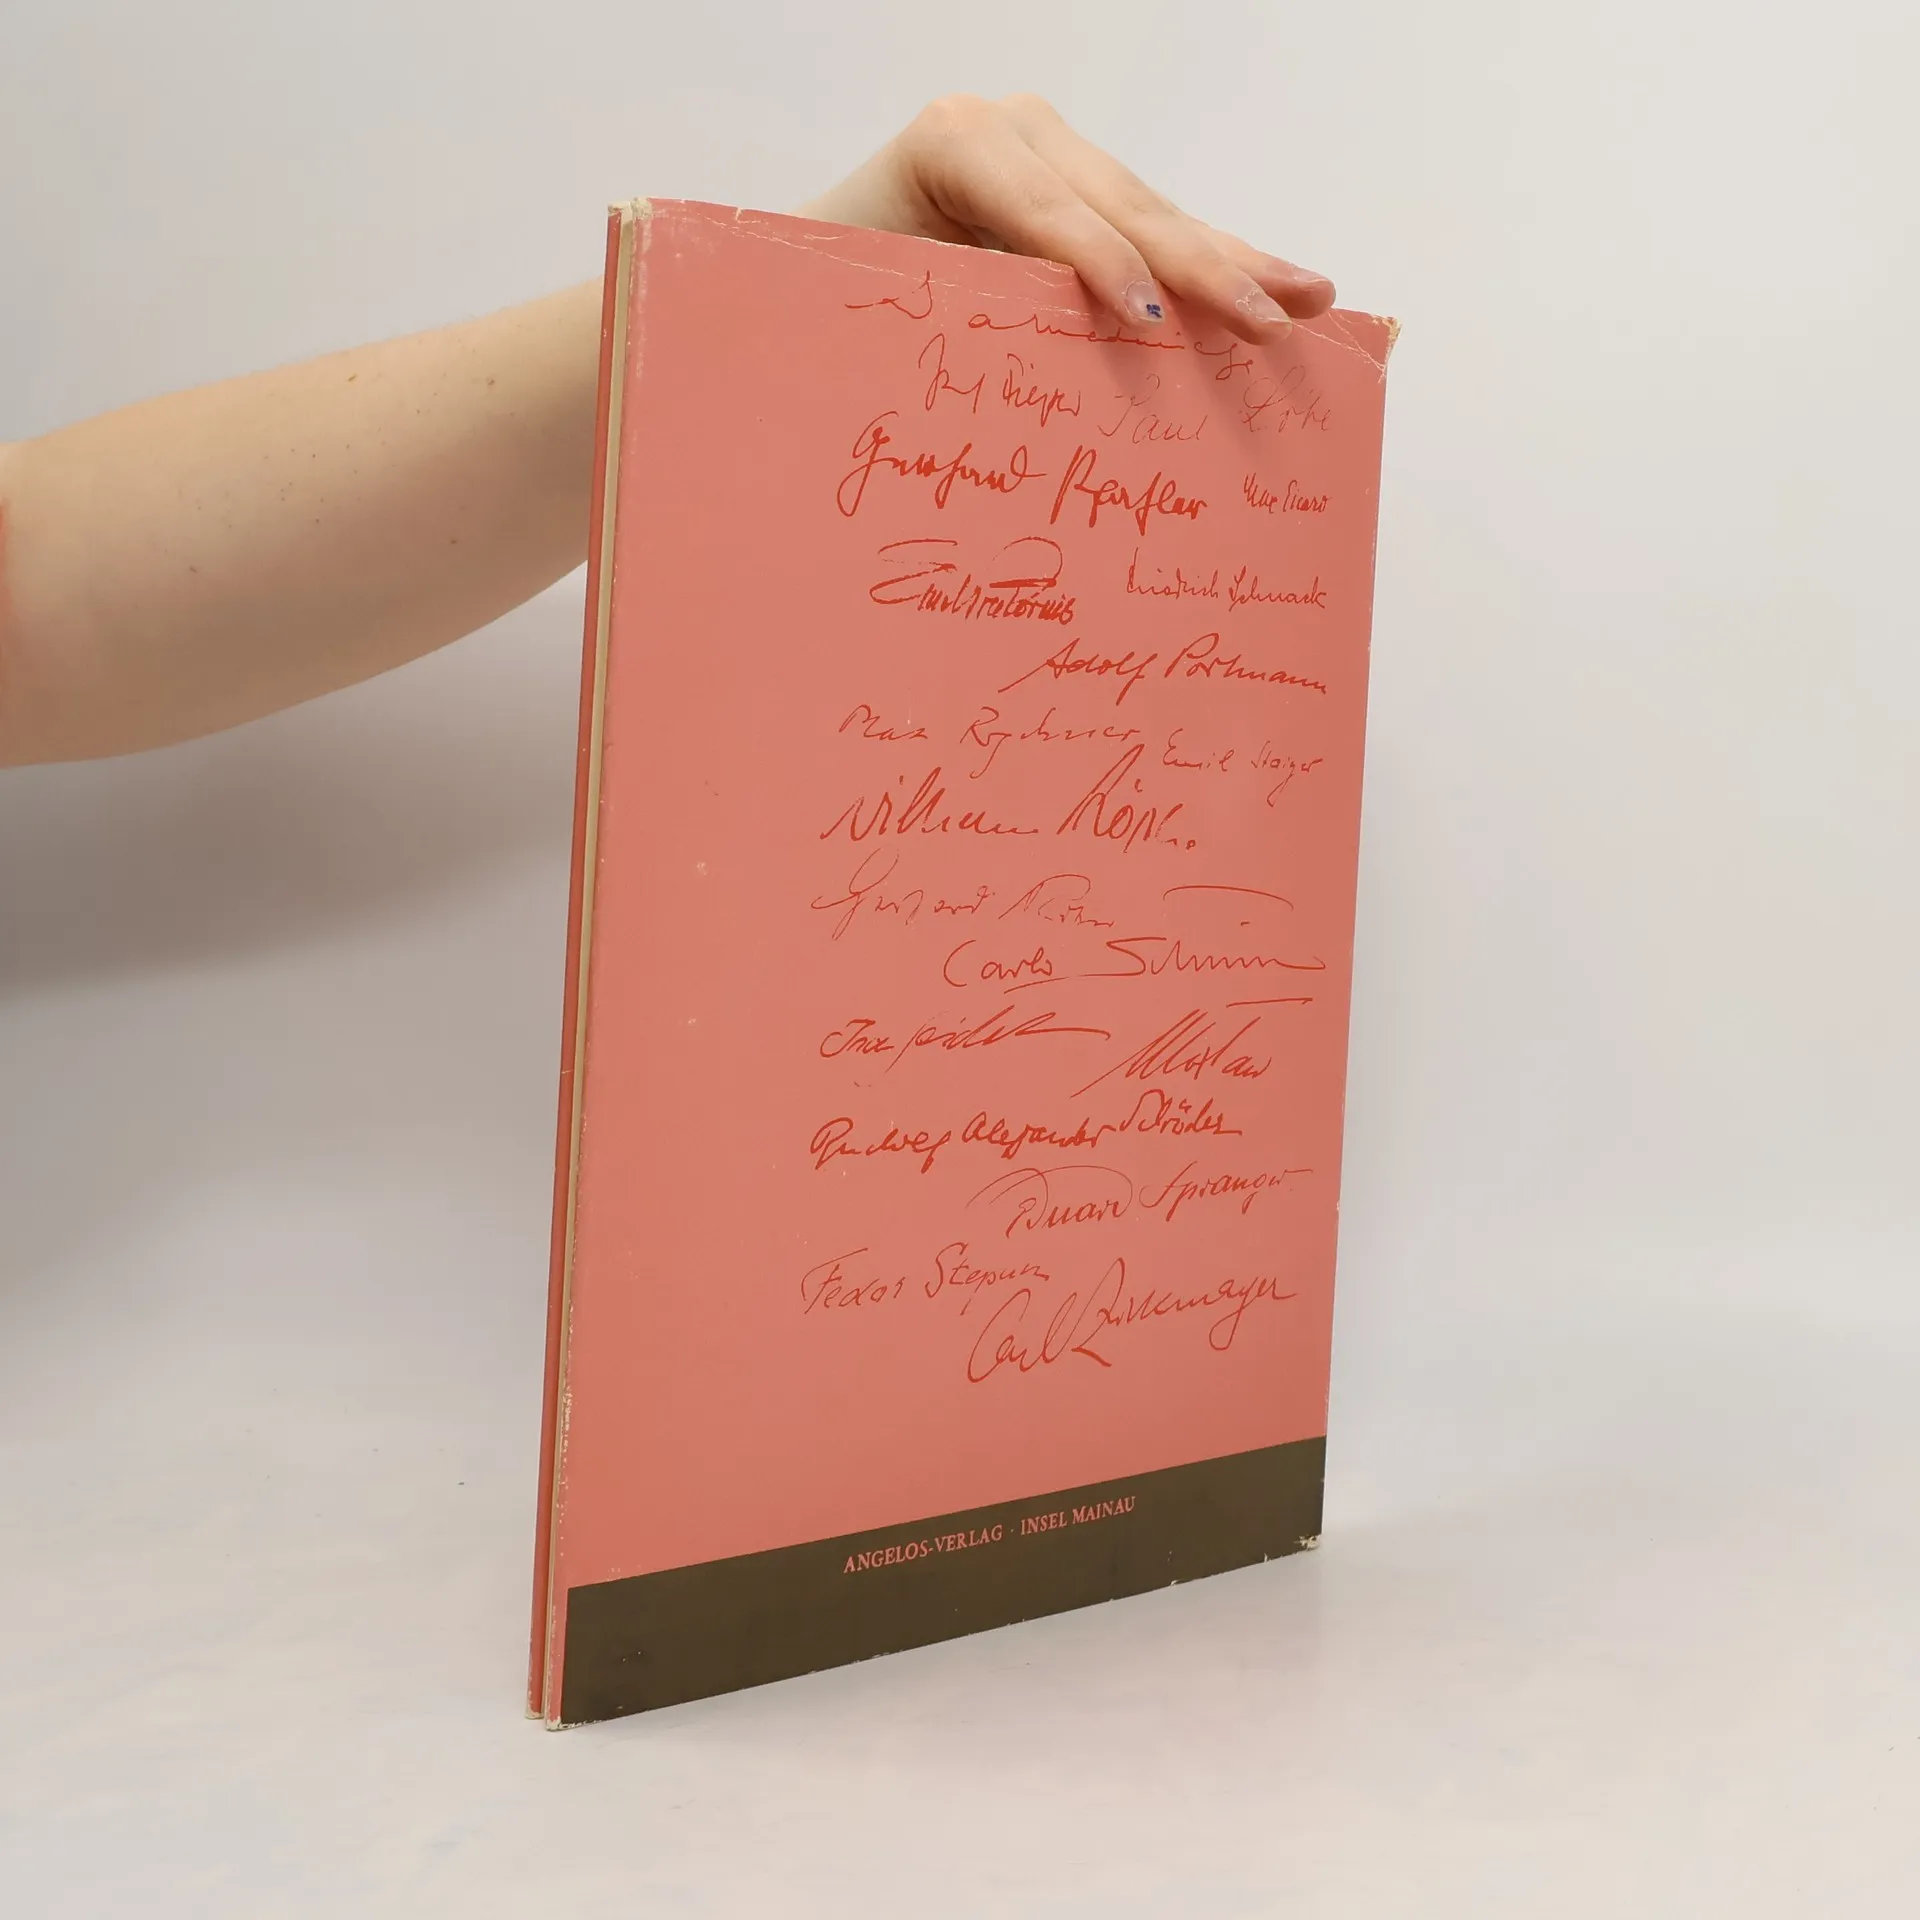 Paul Löbe
Gerhard Pfahler Max Picard
Emil Preetorius Friedrich Schnack
Adolf Portmann
Max Rychner Emil Staiger
Wilhelm Röpke
Gerhard Ritter
Carlo Schmid
Ina Seidel
Rudolf Alexander Schröder
Eduard Spranger
Fedor Stepun
Carl Zuckmayer
ANGELOS-VERLAG · INSEL MAINAU